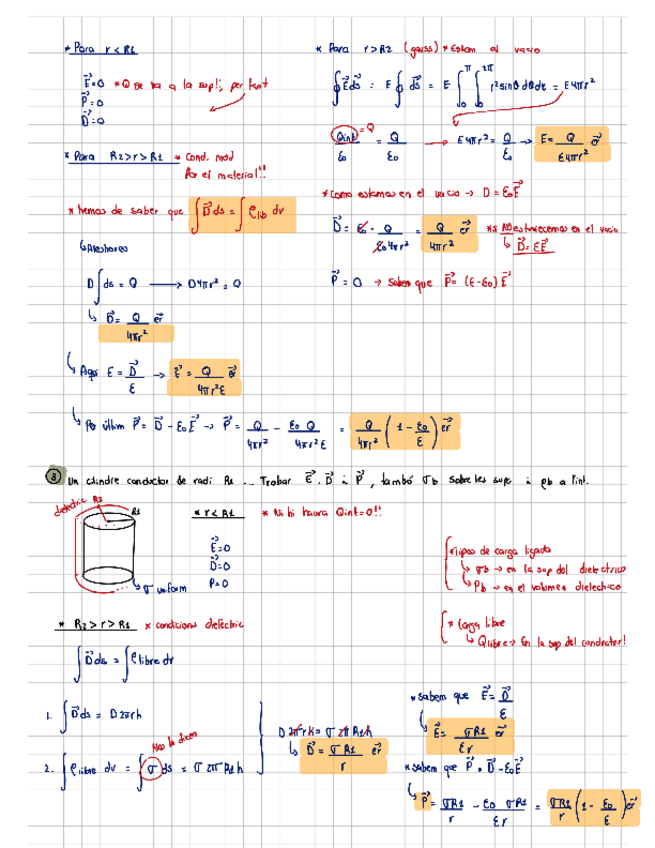 * Para r < R1
E⃗=0 * Q se va a la sup!!, per tant
P⃗=0
D⃗=0
* Para R2>r>R1 * Cond. mod
por el material!!
* hemos de saber que ∫D⃗ds = ∫ρlib dv
↳Aleshores
D∫ds = Q → D4πr² = Q
↳ D⃗ = Q/4πr² er⃗
↳ Aquí E = D⃗/ε → E⃗ = Q/4πr²ε er⃗
↳ Per últim P⃗ = D⃗ - ε0E⃗ → P⃗ = Q/4πr² - ε0 Q/4πr²ε = Q/4πr² (1 - ε0/ε) er⃗
* Para r>R2 (gauss) * Estem al vacio
∮E⃗ds⃗ = E∮ds⃗ = E∫₀^π∫₀^2π r²sinθ dθdα = E4πr²
Qint/ε0 =Q = Q/ε0 → E4πr² = Q/ε0 → E = Q/ε4πr² er⃗
* Como estamos en el vacio → D = ε0E⃗
D⃗ = ε0 · Q/ε04πr² = Q/4πr² er⃗ *si NO estuviecemos en el vacio
↳ D⃗=εE⃗
P⃗ = 0 → Sabem que P⃗ = (ε-ε0)E⃗
③ Un cilindre conductor de radi R1 ... Trobar E⃗, D⃗ i P⃗, també σb sobre les sup i ρb a l'int.
dielectric R2
R1
σ uniform
* r < R1 * No hi haura Qint=0!!
E⃗=0
D⃗=0
P=0
*Tipos de carga ligada
↳ σb → en la sup del dielectrico
↳ ρb → en el volumen dielectrico
* Carga libre
↳ Qlibre → En la sup del conductor!
* R2 > r > R1 * condicions dielèctric
∫D⃗ds = ∫ρlibre dv
1. ∫D⃗ds = D2πrh
2. ∫ρlibre dv = ∫σ ds = σ 2πR1h
Nos lo dicen
D 2πrh = σ 2πR1h
↳ D⃗ = σR1/r er⃗
*sabem que E⃗ = D⃗/ε
↳ E⃗ = σR1/εr er⃗
*sabem que P⃗ = D⃗ - ε0E⃗
↳ P⃗ = σR1/r - ε0 σR1/εr = σR1/r (1 - ε0/ε) er⃗